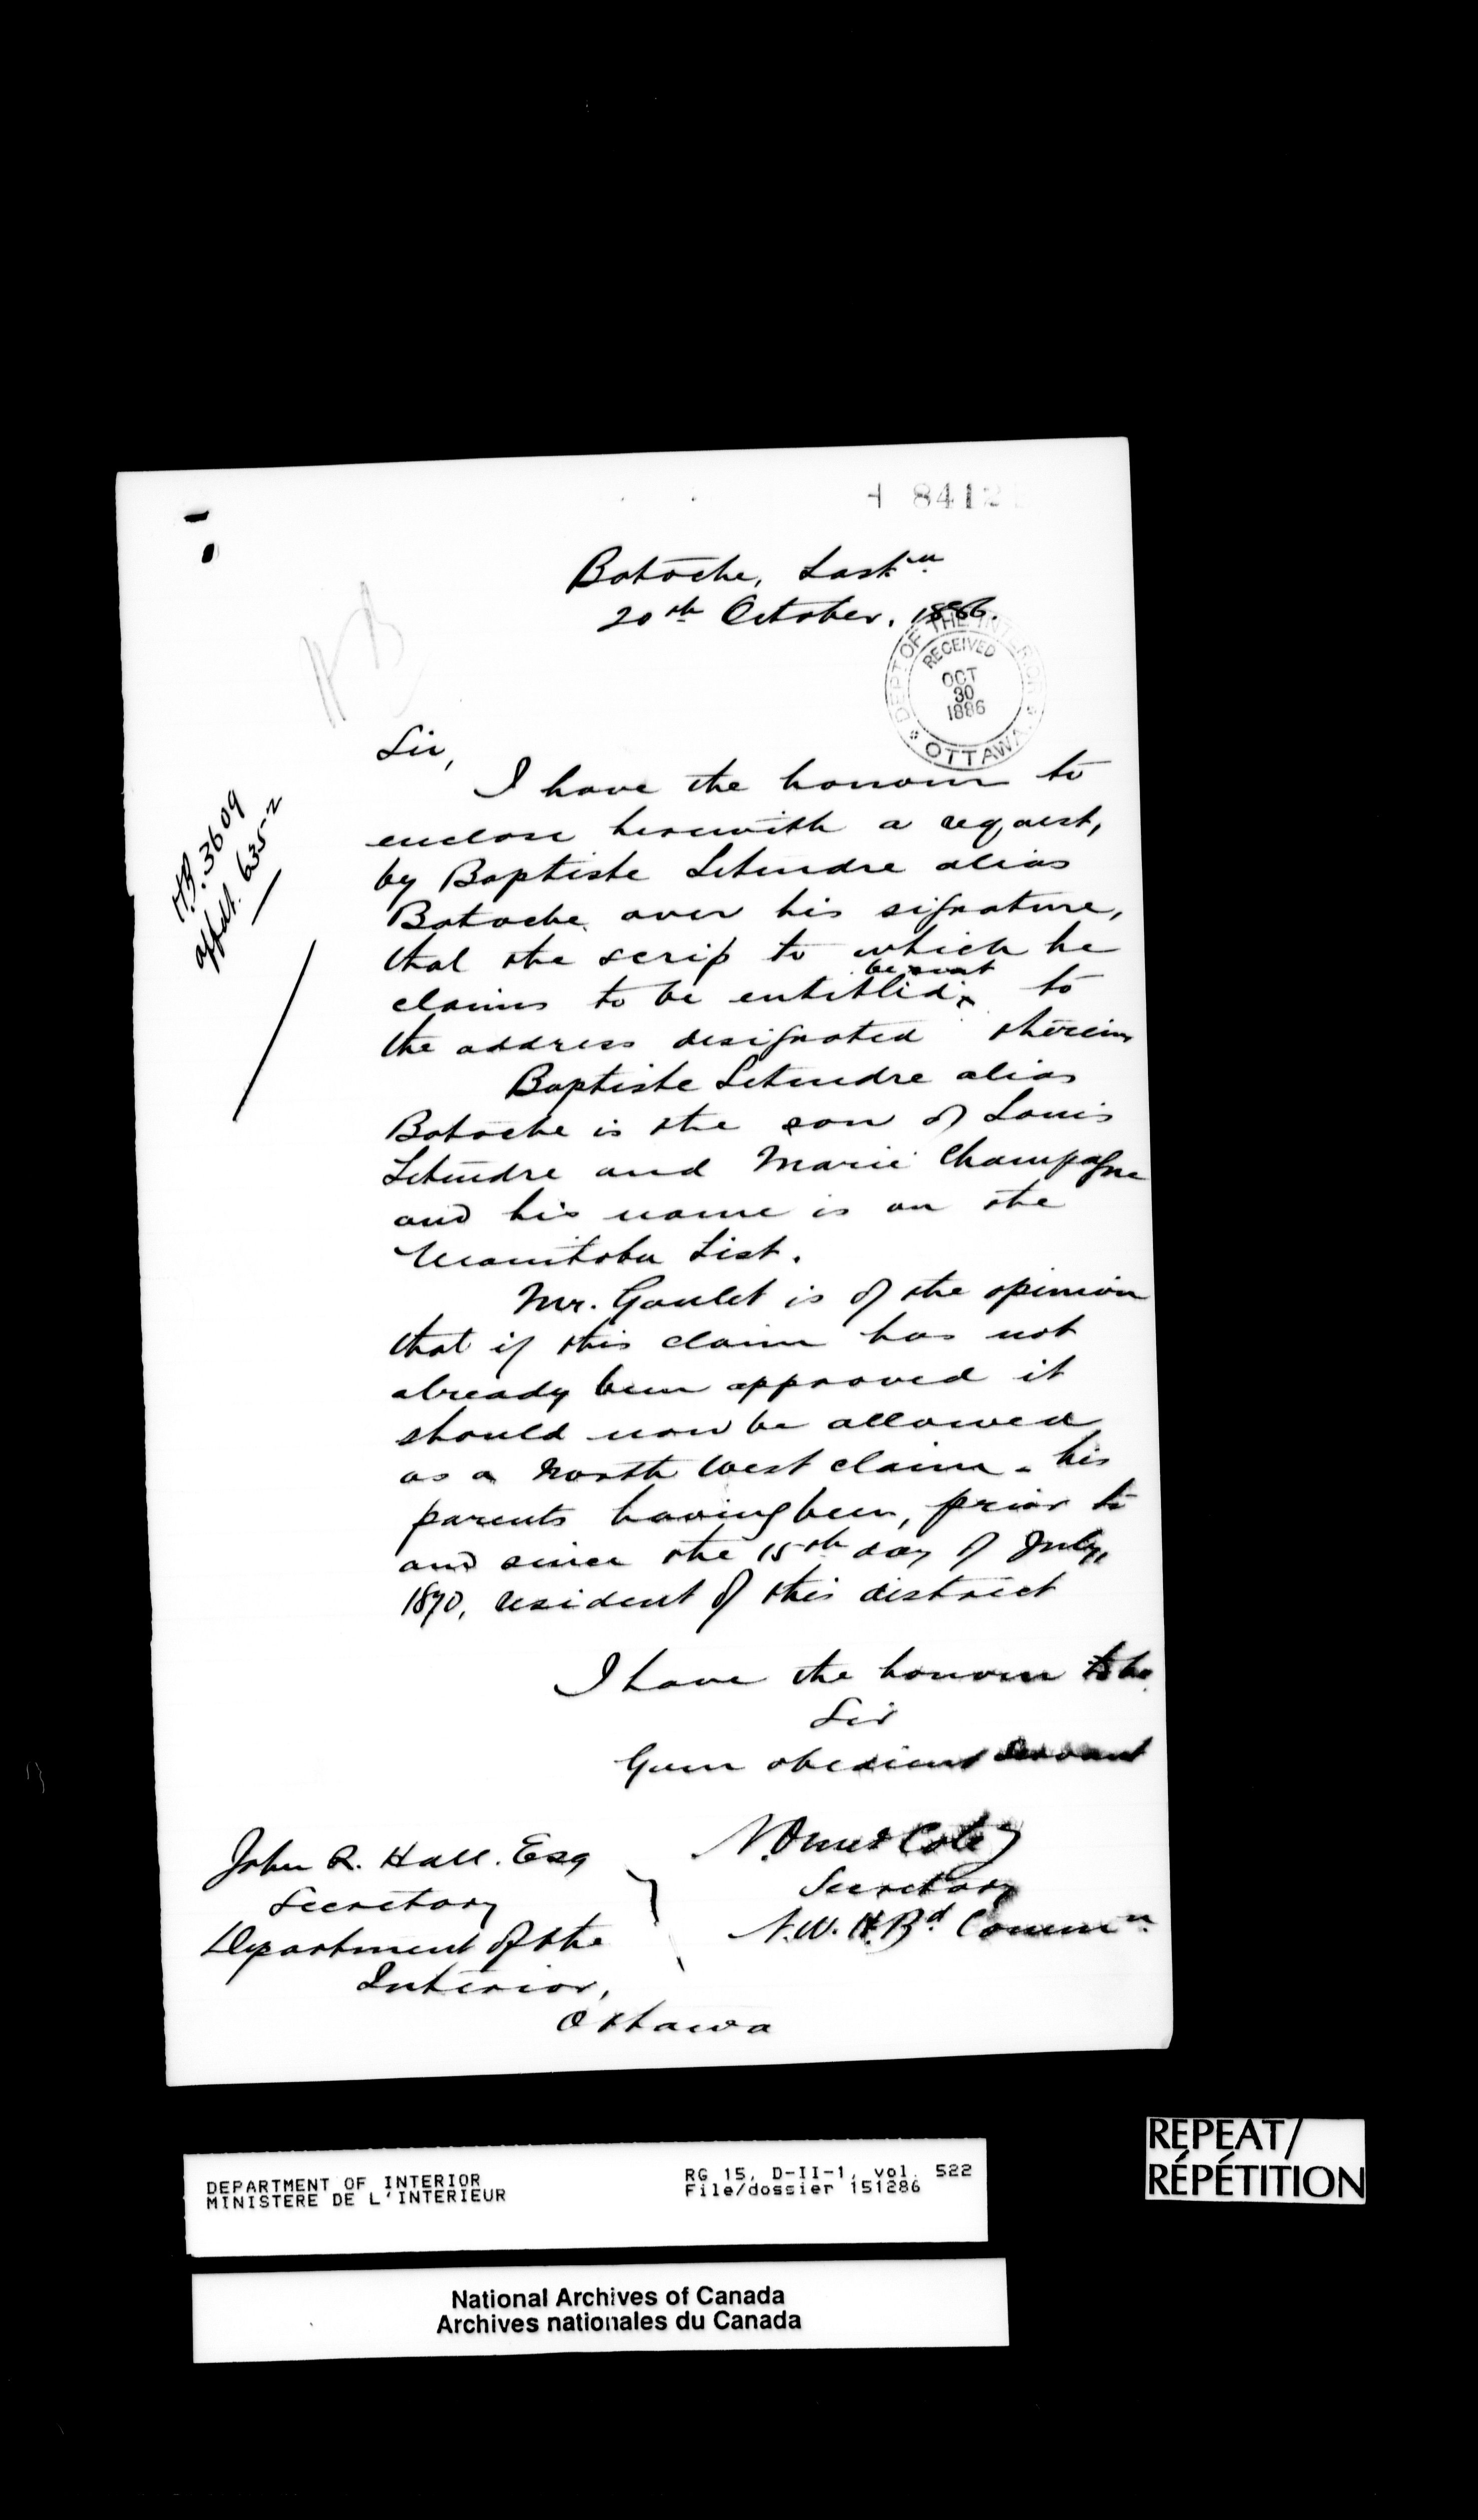 H 84121
Batoche, Sask.n
20th October, 1886.
DEPT OF THE INTERIOR
RECEIVED
OCT
30
1886
OTTAWA
HB
Sir,
I have the honour to
enclose herewith a request,
by Baptiste Letendre alias
Batoche over his signature,
that the scrip to which he
be sent
claims to be entitled to
the address designated therein
Baptiste Letendre alias
Batoche is the son of Louis
Letendre and Marie Champagne
and his name is on the
Manitoba List.
Mr. Goulet is of the opinion
that if this claim has not
already been approved it
should now be allowed
as a North West claim - his
parents having been, prior to
and since the 15th day of July,
1870, resident of this district
I have the honour to be
Sir
Your obedient servant
N. Omer Coté
Secretary
N.W. H.Bd Commn
John R. Hall. Esq
Secretary
Department of the
Interior,
Ottawa
HB. 3609
affdt. 635-2
DEPARTMENT OF INTERIOR
MINISTERE DE L'INTERIEUR
RG 15, D-II-1, vol. 522
File/dossier 151286
REPEAT/
RÉPÉTITION
National Archives of Canada
Archives nationales du Canada